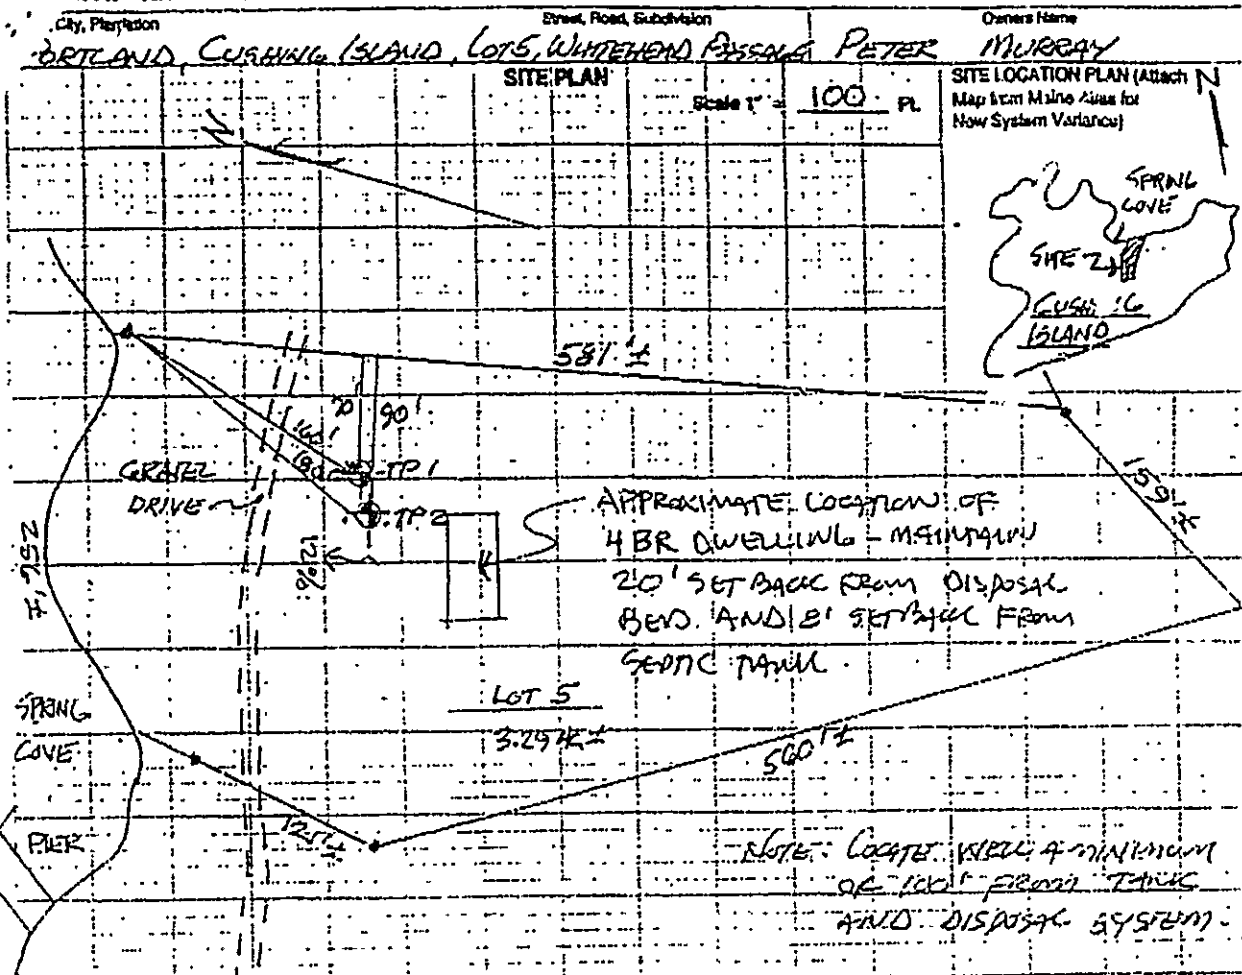 City, Plantation
Street, Road, Subdivision
Owners Name
PORTLAND, CUSHING ISLAND, LOT 5, WHITEHEAD PASSAGE PETER MURRAY
SITE PLAN
Scale 1" = 100 Ft.
SITE LOCATION PLAN (Attach
Map from Maine Atlas for
New System Variance)
N
N
SPRING
COVE
SITE
CUSHING
ISLAND
581'±
70'
90'
160'
180'
TP 1
TP 2
GRAVEL
DRIVE
12%
256'±
159'±
APPROXIMATE LOCATION OF
4 BR DWELLING - MAINTAIN
20' SETBACK FROM DISPOSAL
BED. AND 8' SETBACK FROM
SEPTIC TANK.
LOT 5
SPRING
COVE
560'±
125'±
PIER
NOTE: LOCATE WELL A MINIMUM
OF 100' FROM TANK
AND DISPOSAL SYSTEM.